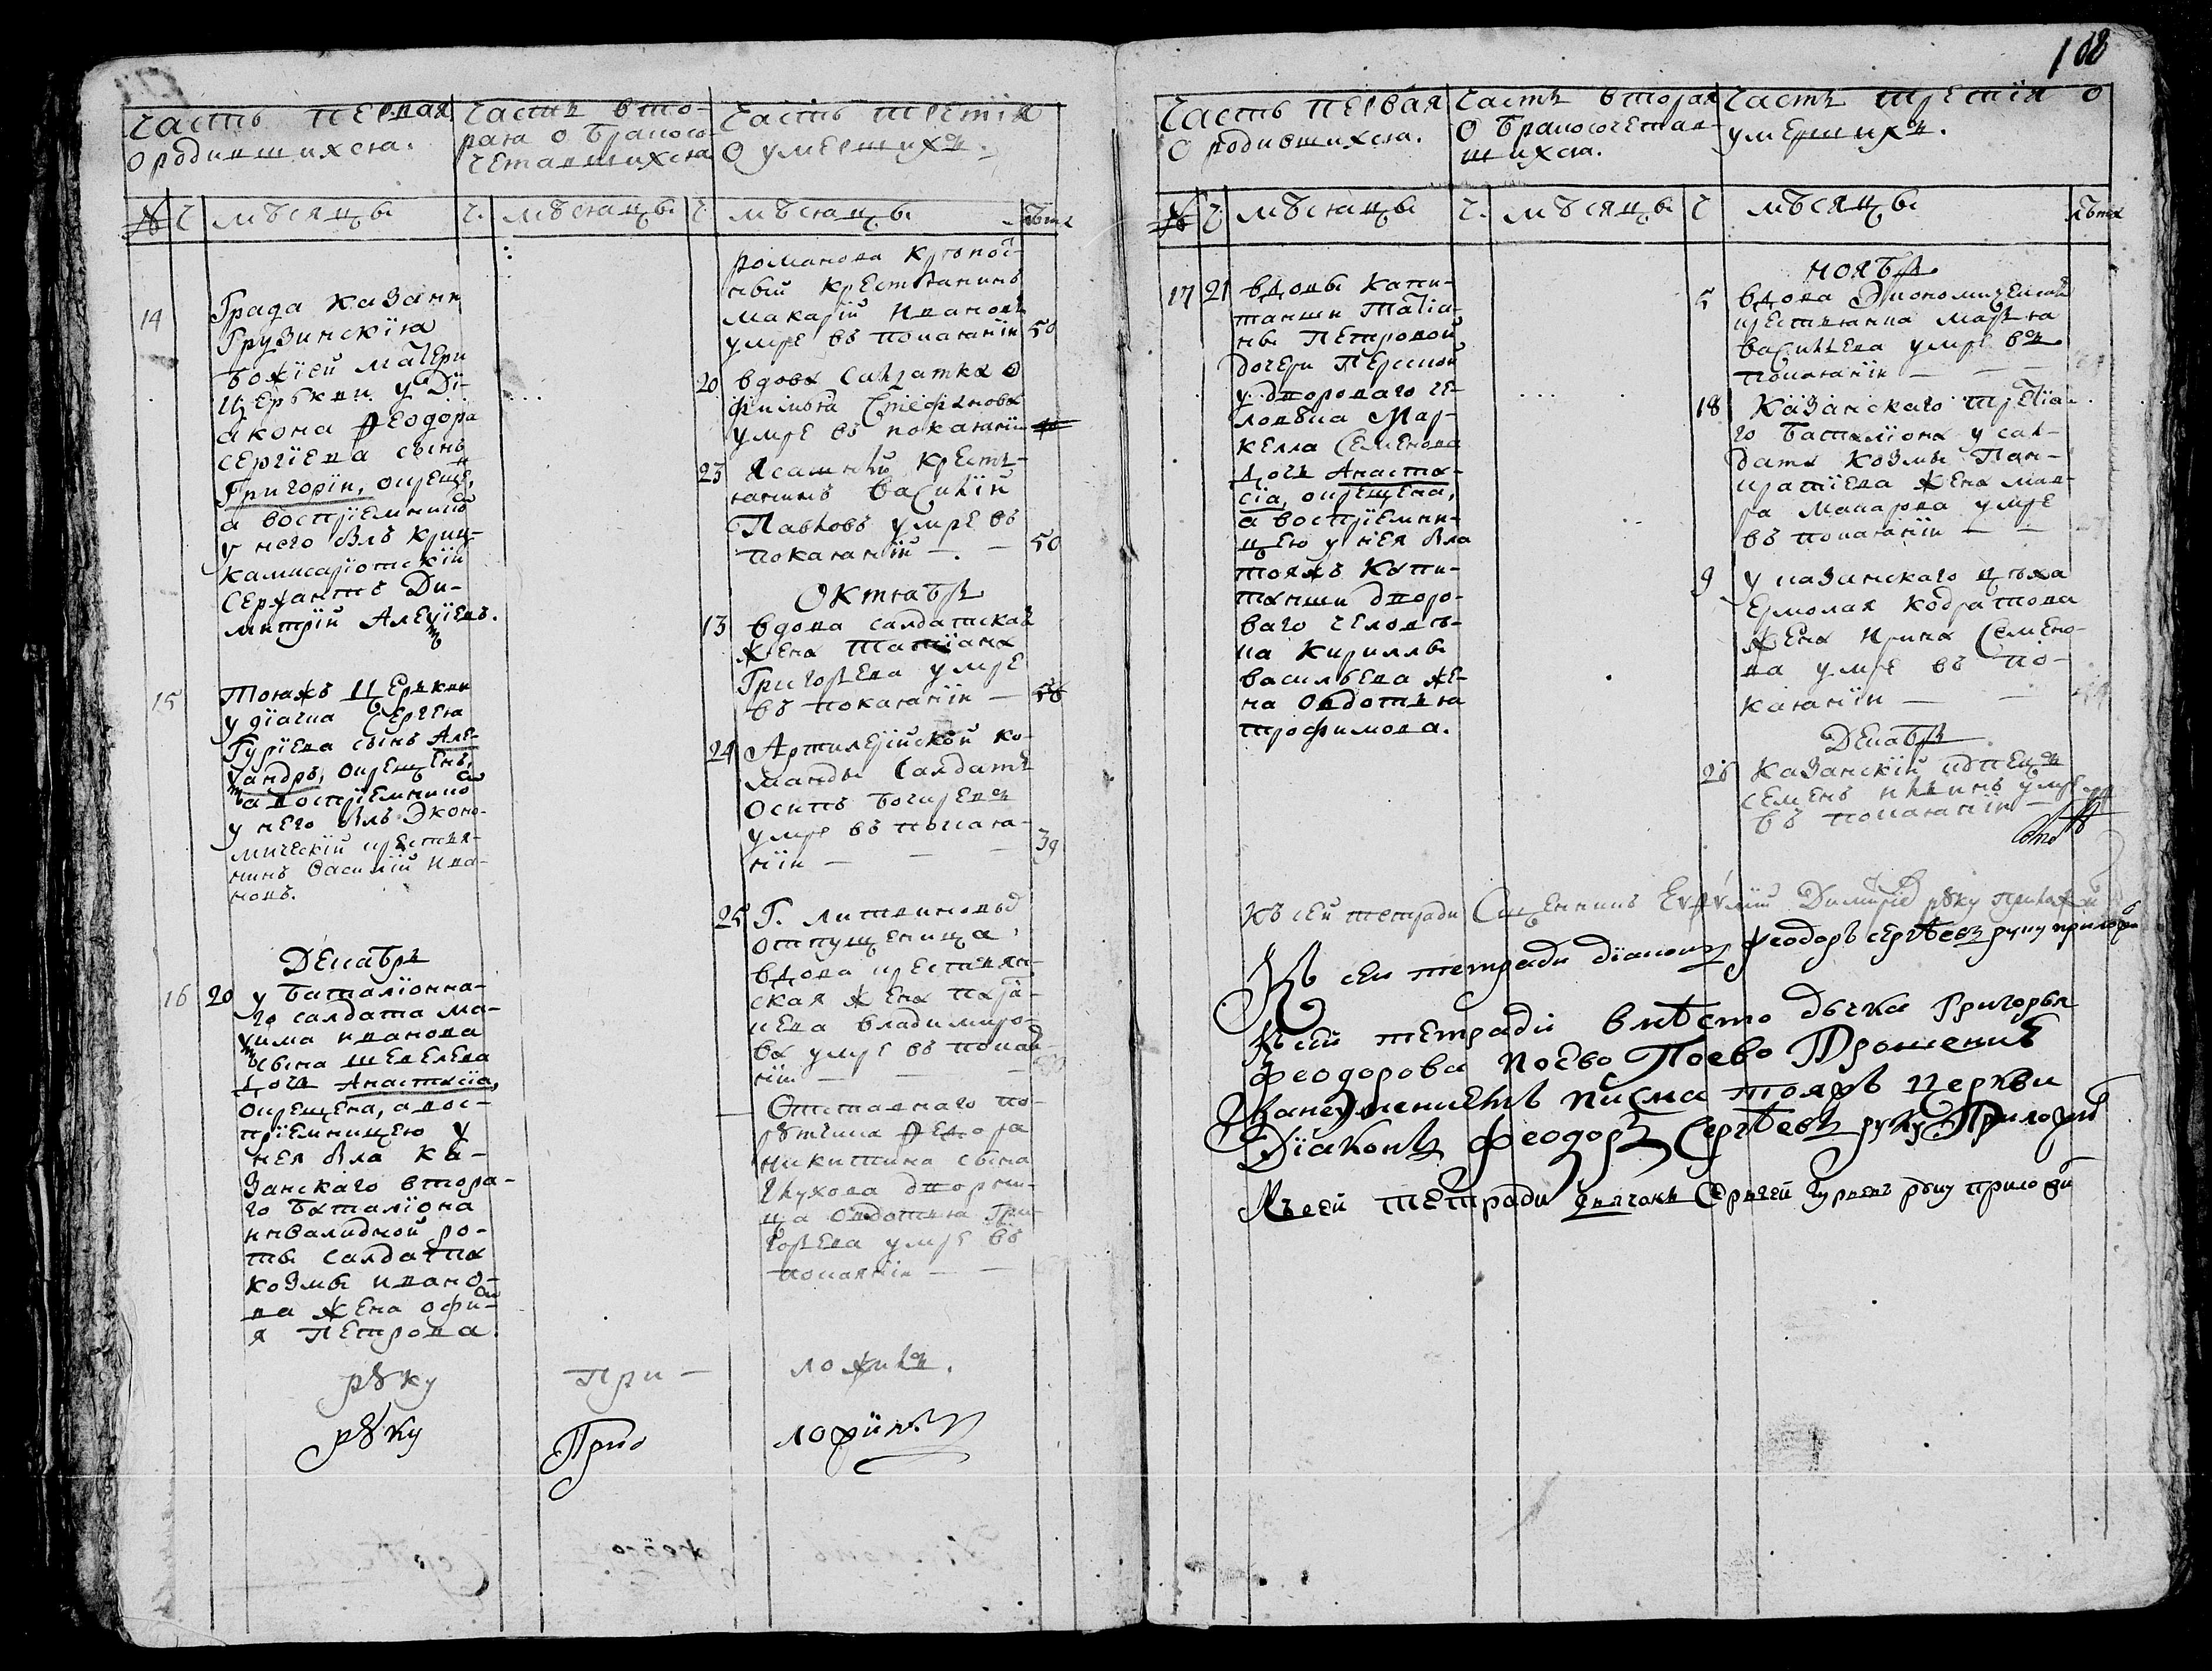 Часть первая
о родившихся.
Часть вто-
рая о бракосо-
четавшихся
Часть третїя
о умершихъ.
№ Ч мѣсяцы Ч. мѣсяцы Ч мѣсяцы лѣта
14
Града Казани
Грузинскїя
Божїей матери
церькви у дї-
акона Ѳеодора
Сергїева сынъ
Григорїи, крещенъ,
а воспрїемникъ
у него былъ криц-
камисарїотскїй
сержантъ Ди-
митрїй Алеѯїевъ.
15
Тояжъ церькви
у дїячка Сергея
Гурїева сынъ Але-
ѯандръ, крещенъ,
а воспрїемникъ
у него былъ эконо-
мическїй крестья-
нинъ Василїй Ива-
новъ.
Декабрь
16 20 у баталїонна-
го салдата ма-
ѯима иванова
сына шевелева
дочь Анастасїа,
крещена, а вос-
прїемницею у
нея была Ка-
занскаго втора-
го баталїона
инвалидной ро-
ты салдата
козмы ивано-
ва жена софи-
я Петрова.
романова крѣпос-
ный крестьянинъ
макарїй Ивановъ
умре въ покаянїи 50
20 вдова салдатка
Филитя Стефанова
умре въ покаянїи
23 Ясашный кресть-
янинъ Василїй
Павловъ умре въ
покаянїи — 50
Октябрь
13 вдова салдатская
жена Татїана
Григорьева умре
въ покаянїи — 56
24 Артилерїйской ко-
манды салдатъ
Осипъ Богиревъ
умре въ покая-
нїи — — 39
25 Г. Литвиновыд
отпущеница
вдова крестьян-
ская жена пара-
кева владимиро-
ва умре въ покая
нїи —
— Отставного по-
рутчика Ѳедора
никитина сына
Глухова дворни-
ца Овдотья Гри-
горьева умре въ
покаянїи —
рꙋку при- ложилъ.
рꙋку При ложилъ
108
Часть первая
о родившихся.
Часть вторая
о бракосочетав-
шихся.
Часть третїя о
умершихъ.
№ Ч. мѣсяцы Ч. мѣсяцы Ч мѣсяцы лѣта
17 21 вдовы капи-
танши Татїа-
ны Петровой
дочери Перской
у двороваго че-
ловѣка Мар-
келла Семенова
дочь Анаста-
сїа, крещена,
а воспрїемни-
цею у нея была
тояжъ капи-
танши дворо-
ваго человѣ-
ка Кириллы
васильева же-
на Овдотья
трофимова.
ноябрь
5 вдова Экономическая
крестьянка марья
васильева умре въ
покаянїи — — —
18 Казанскаго третїа-
го баталїона у сал-
дата козмы Пан-
кратїева жена мав-
ра макарова умре
въ покаянїи — —
9 У казанскаго цѣха
Ермолая кодратова
жена Ирина Семено-
ва умре въ по-
каянїи — —
Декабрь
28 Казанскїй купецъ
семенъ ильинъ умре
въ покаянїи —
Къ сей тетради Сщенникъ Евѳѵмїй Димитрїевъ рꙋку приложилъ
Къ сеи тетради дїаконъ Ѳеодоръ сергѣевъ руку приложилъ
Къ сей тетради вмѣсто дьчка Григорья
Ѳеодорова поево Поево Прошенїю
Занеумениемъ писма тояжъ церкви
Дїаконъ Ѳеодоръ Сергѣевъ руку Приложилъ
Къ сей тетради дьячокъ Сергей Гурьевъ рꙋку приложилъ